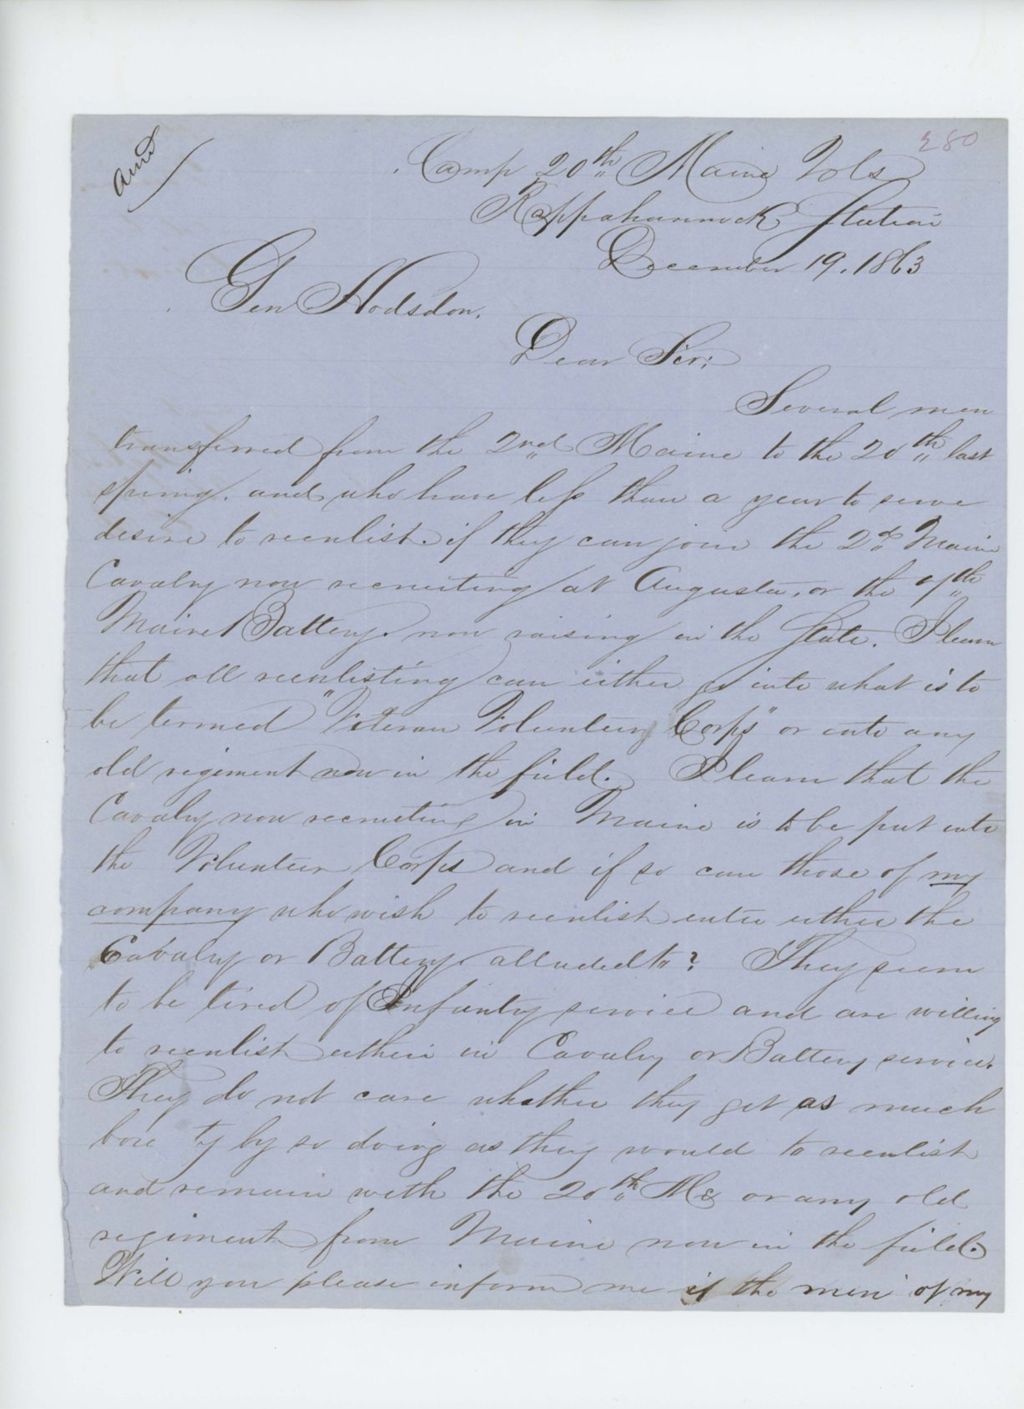 280
Ansd
Camp 20th Maine Vols
Rappahannock Station
December 19, 1863
Gen Hodsdon,
Dear Sir;
Several men
transferred from the 2nd Maine to the 20th last
spring, and who have less than a year to serve
desire to reenlist if they can join the 2d Maine
Cavalry now recruiting at Augusta, or the 7th
Maine Battery now raising in the State. I learn
that all reenlisting can either go into what is to
be termed "Veteran Volunteer Corps" or into any
old regiment now in the field. I learn that the
Cavalry now recruiting in Maine is to be put into
the Volunteer Corps and if so can those of my
company who wish to reenlist enter either the
Cavalry or Battery alluded to? They seem
to be tired of Infantry service and are willing
to reenlist either in Cavalry or Battery service.
They do not care whether they get as much
boun ty by so doing as they would to reenlist
and remain with the 20th Me or any old
regiment from Maine now in the field.
Will you please inform me if the men of my